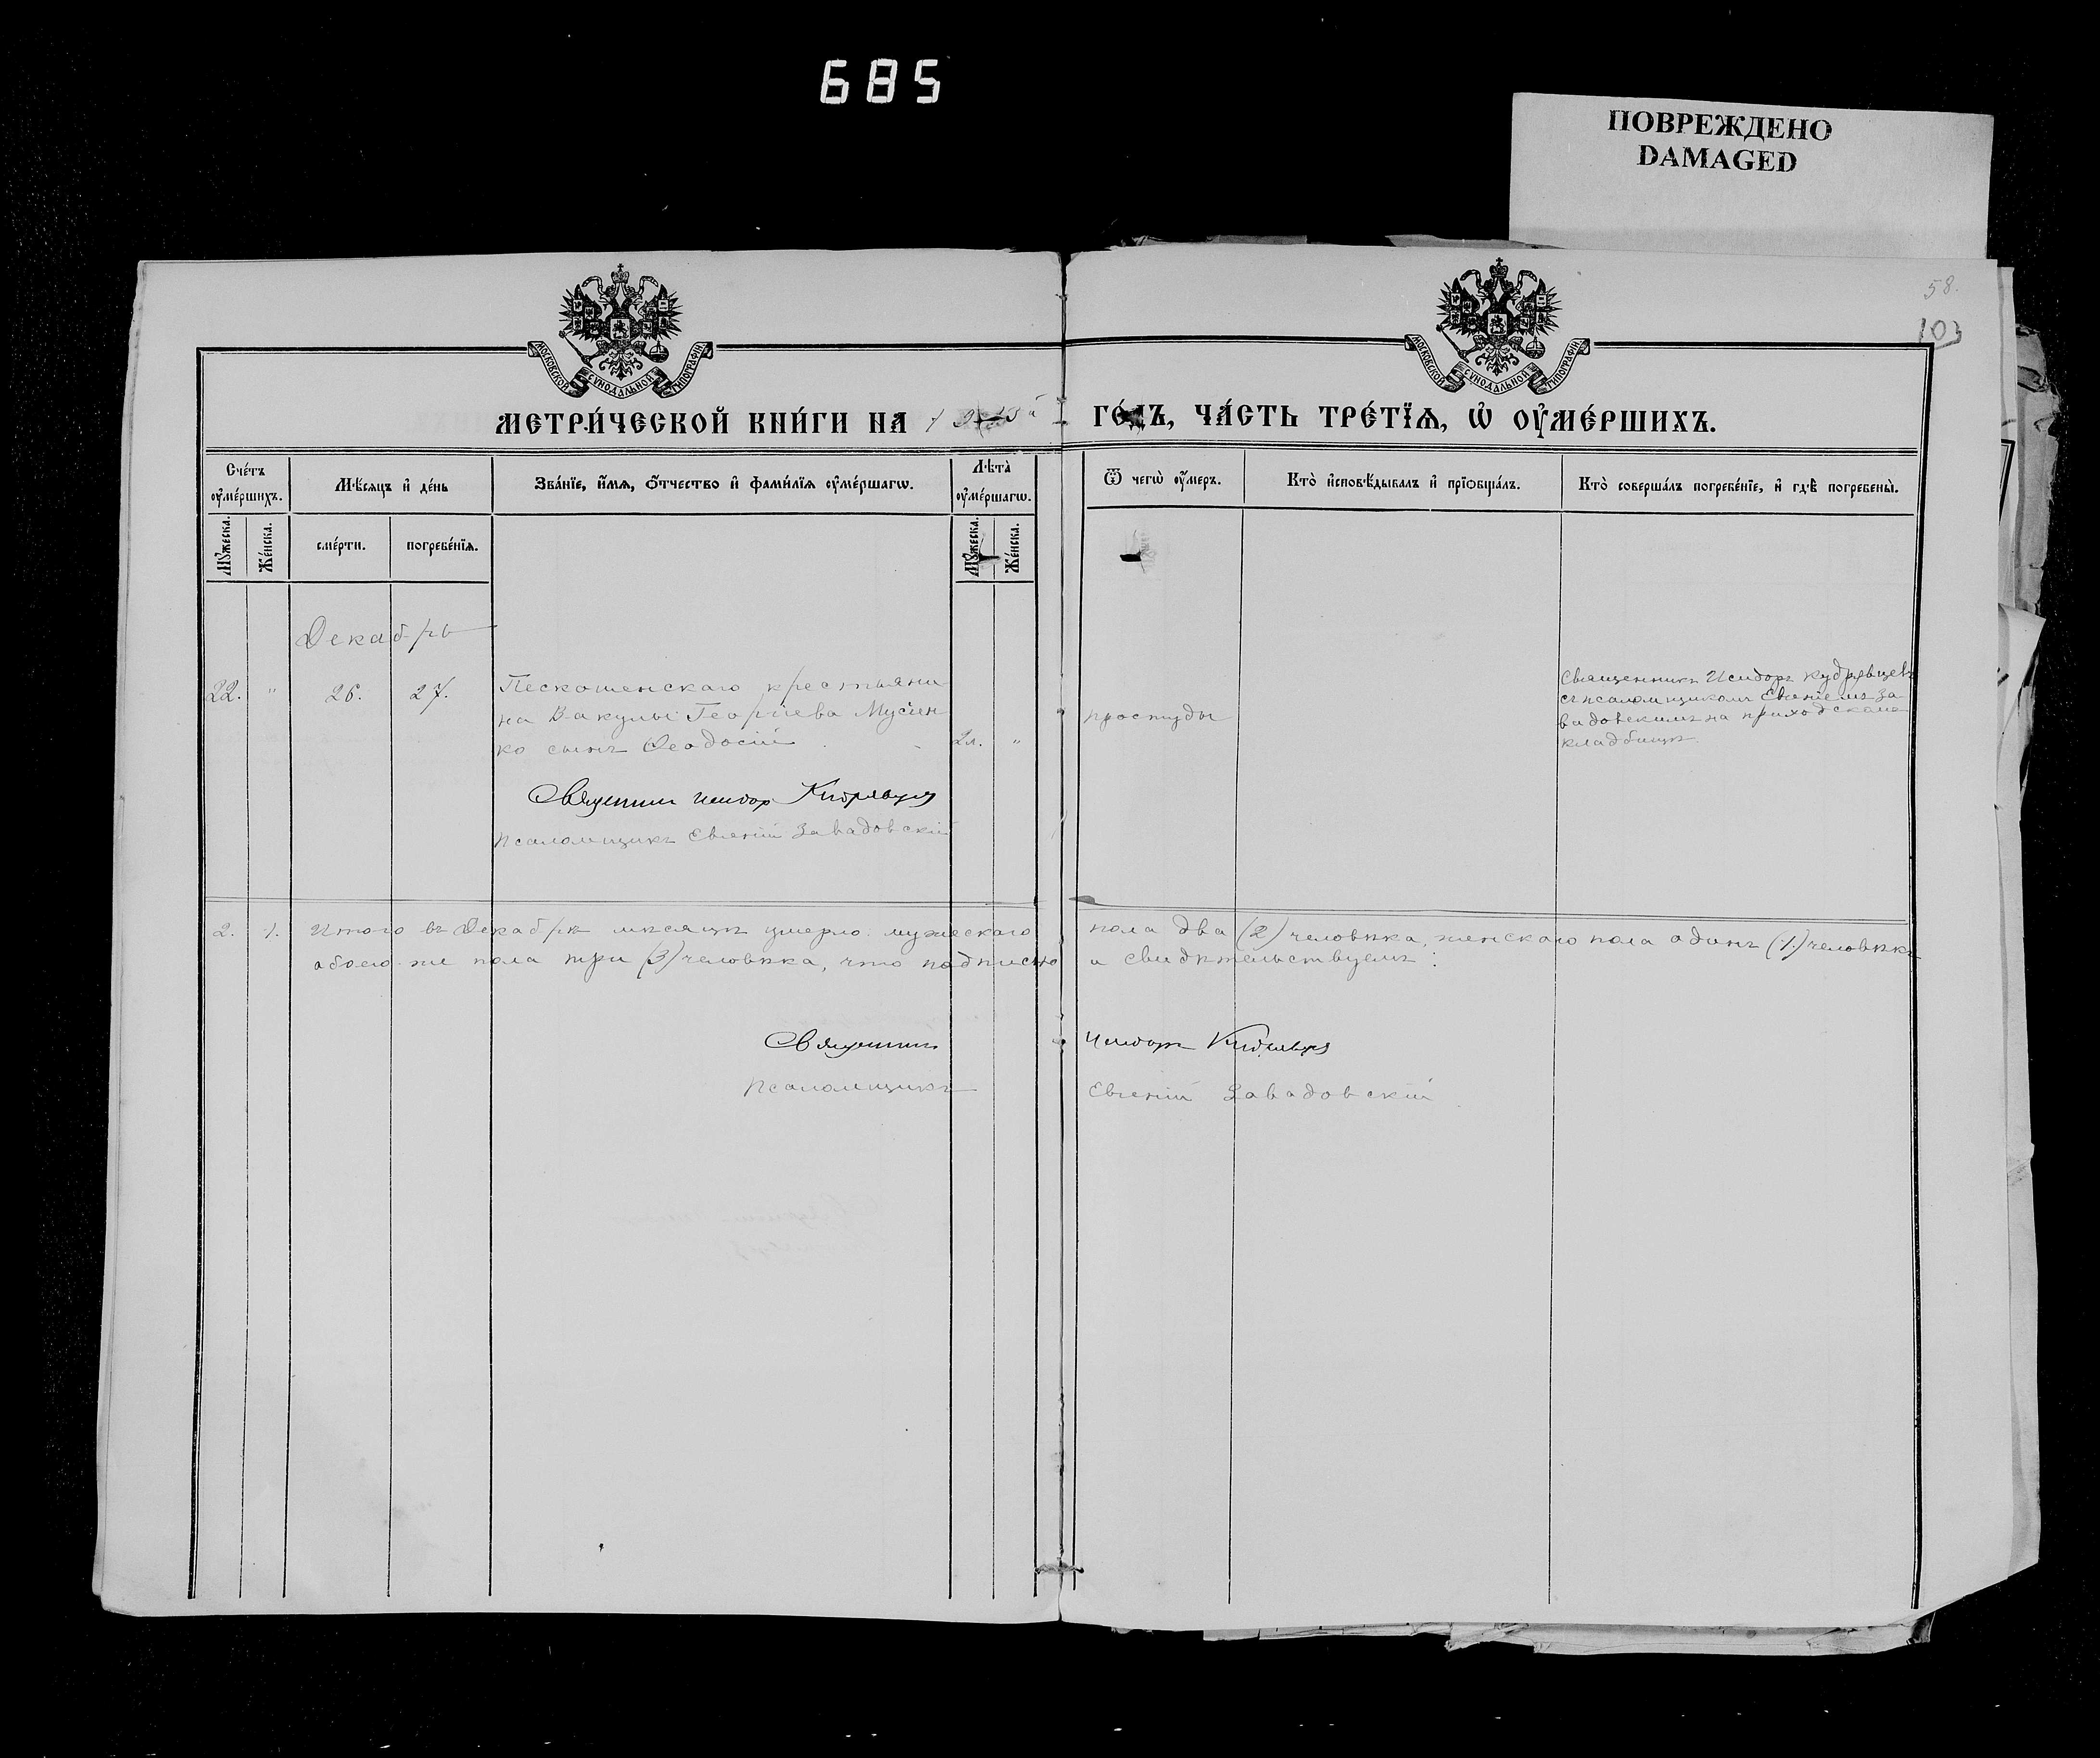 685
ПОВРЕЖДЕНО
DAMAGED
58.
103
МОСКОВСКОЙ СУНОДАЛЬНОЙ ТИПОГРАФІИ
МОСКОВСКОЙ СУНОДАЛЬНОЙ ТИПОГРАФІИ
МЕТРИ́ЧЕСКОЙ КНИ́ГИ НА 1913й ГО́ДЪ, ЧА́СТЬ ТРЕ́ТЇѦ, Ѡ҆ ОУ҆МЕ́РШИХЪ.
Сче́тъ оу҆ме́ршихъ.
Мꙋ́жеска.
Же́нска.
Мѣ́сѧцъ и҆ де́нь
сме́рти.
погребе́нїѧ.
Зва́нїе, и҆́мѧ, ѻ҆́тчество и҆ фами́лїѧ оу҆ме́ршагѡ.
Лѣта̀ оу҆ме́ршагѡ.
Мꙋ́жеска.
Же́нска.
Ѿ чегѡ̀ оу҆́меръ.
Кто̀ и҆сповѣ́дывалъ и҆ прїѻбща́лъ.
Кто̀ соверша́лъ погребе́нїе, и҆ гдѣ̀ погребены̀.
Декабрь
22. " 26. 27. Пескошенскаго крестьяни
на Вакулы Георгіева Мусіен
ко сынъ Ѳеодосій 2л. "
простуды
Священникъ Исидоръ Кудрявцевъ
съ псаломщикомъ Евгеніемъ За
вадовскимъ на приходскомъ
кладбищѣ.
Священник Исидор Кудрявцев
Псаломщикъ Евгеній Завадовскій
2. 1. Итого въ Декабрѣ мѣсяцѣ умерло мужескаго пола два (2) человѣка, женскаго пола одинъ (1) человѣкъ
обоего же пола три (3) человѣка, что подписью и свидѣтельствуемъ:
Священник Исидоръ Кудрявцев
Псаломщикъ Евгеній Завадовскій